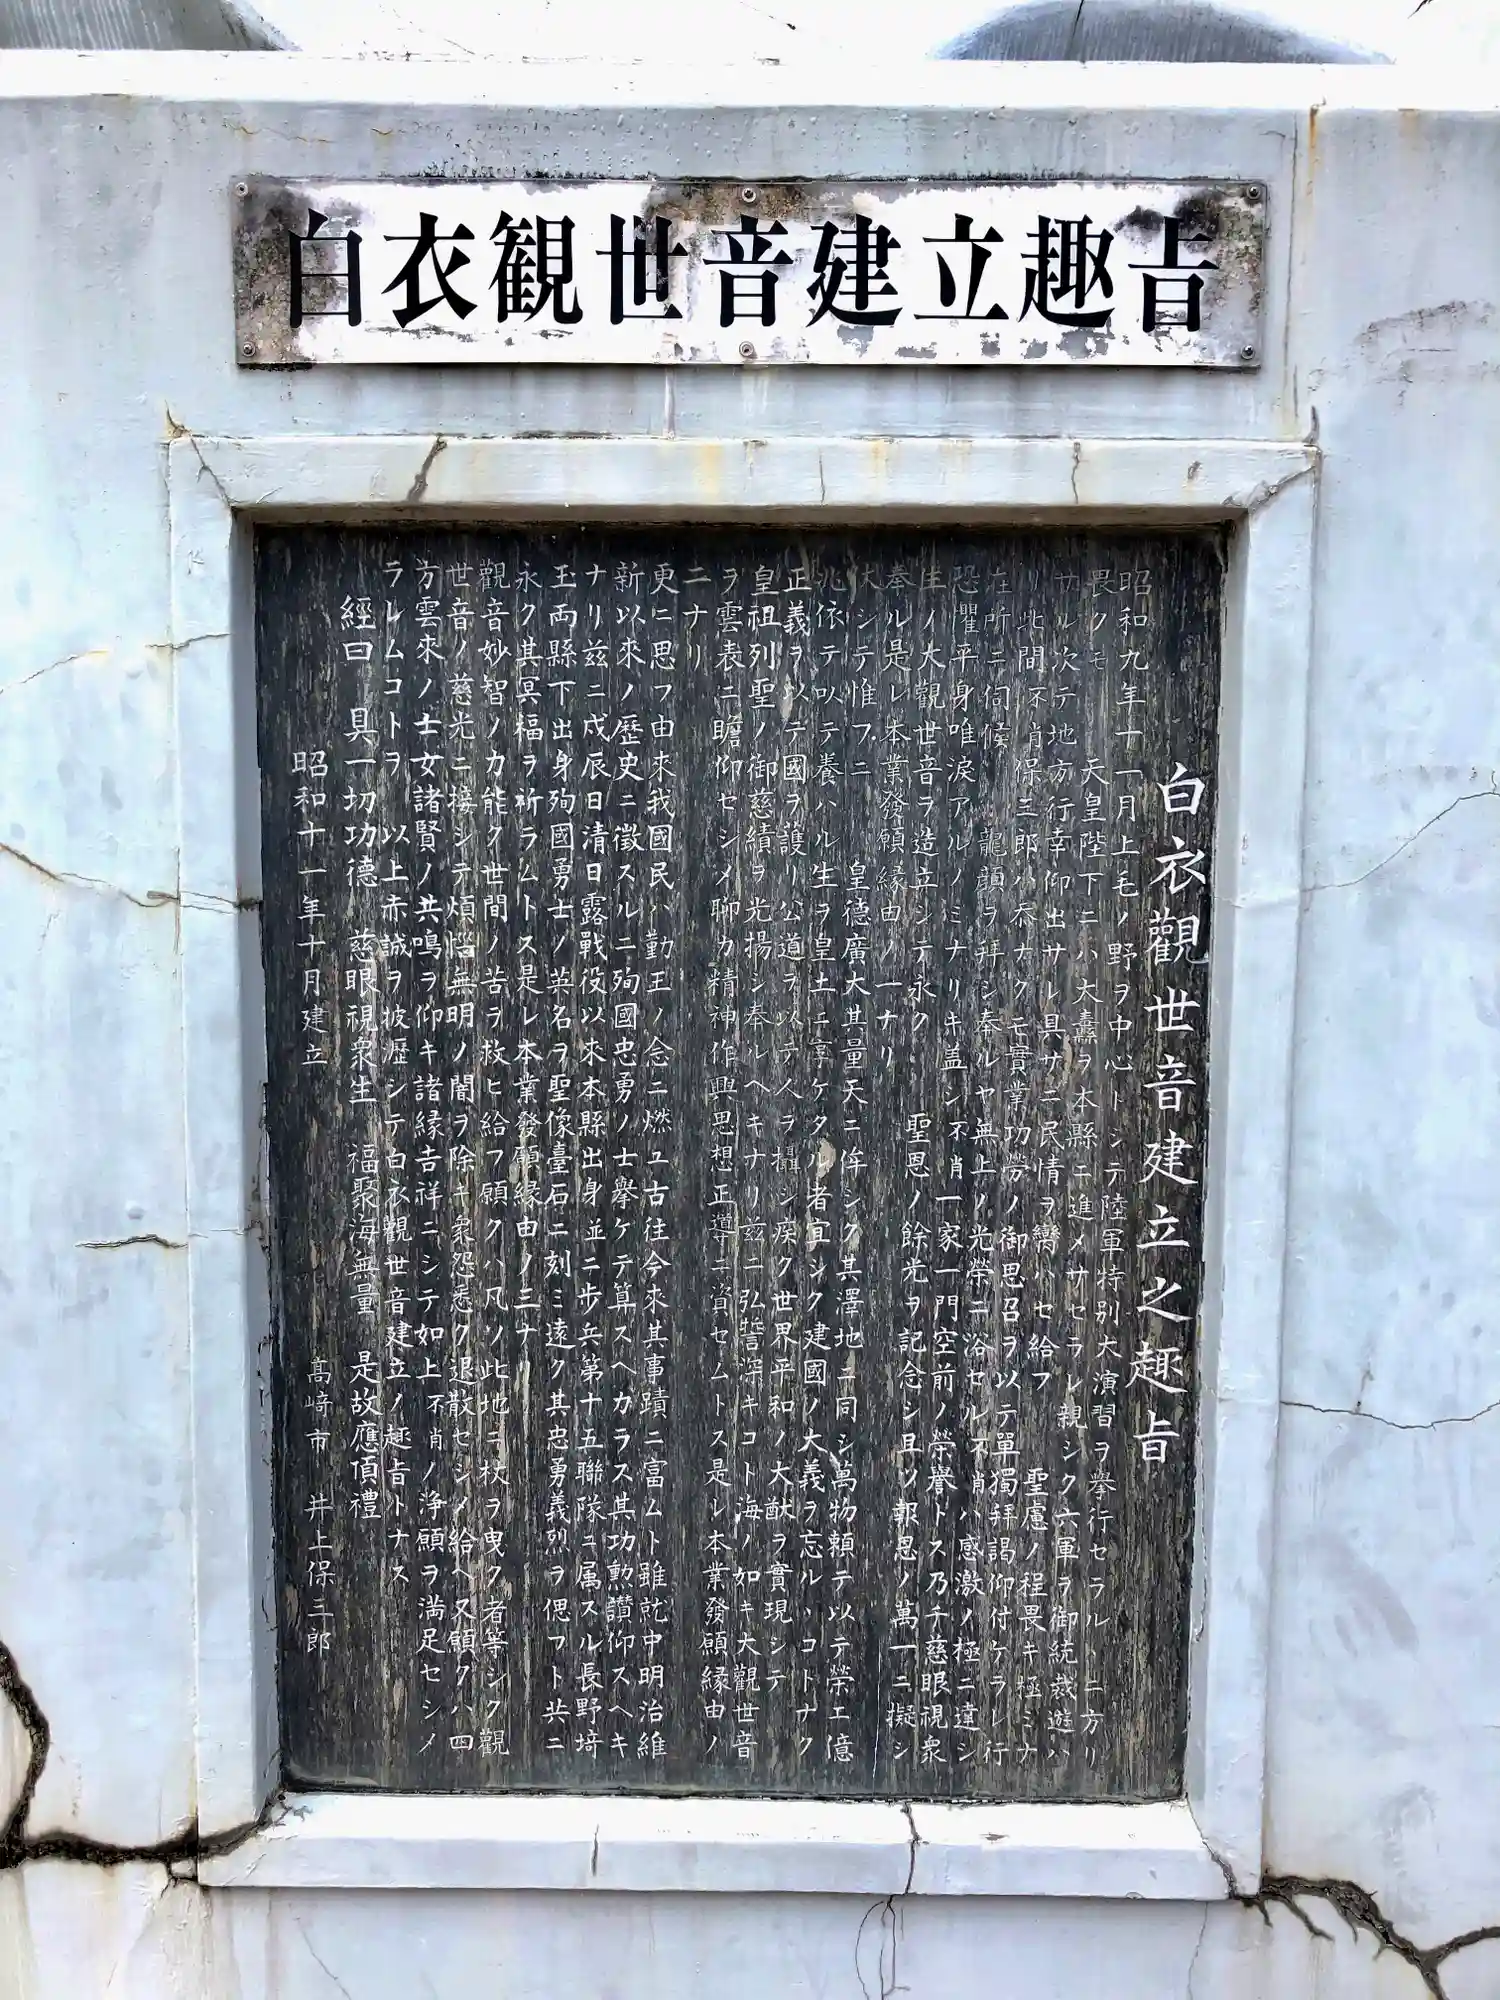 白衣観世音建立趣旨
白衣觀世音建立之趣旨
昭和九年十一月上毛ノ野ヲ中心トシテ陸軍特別大演習ヲ擧行セラル、ニ方リ
畏クモ　天皇陛下ニハ大纛ヲ本縣ニ進メサセラレ親シク六軍ヲ御統裁遊ハ
サル次テ地方行幸仰出サレ具サニ民情ヲ臠ハセ給フ　聖慮ノ程畏キ極ミナ
リ此間不肖保三郎ハ忝ナクモ實業功労ノ御思召ヲ以テ單獨拜謁仰付ケラレ行
在所ニ伺候　龍顔ヲ拜シ奉ルヤ無上ノ光榮ニ浴セル不肖ハ感激ノ極ニ達シ
恐懼平身唯淚アルノミナリキ盖シ不肖一家一門空前ノ榮譽トス乃チ慈眼視衆
生ノ大觀世音ヲ造立シテ永ク　聖恩ノ餘光ヲ記念シ且ツ報恩ノ萬一ニ擬シ
奉ル是レ本業發願緣由ノ一ナリ
伏シテ惟フニ　皇德廣大其量天ニ侔シク其澤地ニ同シ萬物頼テ以テ榮エ億
兆依テ以テ養ハル生ヲ皇土ニ享ケタル者宜シク建國ノ大義ヲ忘ル、コトナク
正義ヲ以テ國ヲ護リ公道ヲ以テ人ヲ攝シ疾ク世界平和ノ大猷ヲ實現シテ
皇祖列聖ノ御慈績ヲ光揚シ奉ルヘキナリ玆ニ弘誓深キコト海ノ如キ大觀世音
ヲ雲表ニ瞻仰セシメ聊カ精神作興思想正導ニ資セムトス是レ本業發願緣由ノ
二ナリ
更ニ思フ由來我國民ハ勤王ノ念ニ燃ユ古往今來其事蹟ニ富ムト雖就中明治維
新以來ノ歷史ニ徵スルニ殉國忠勇ノ士擧ケテ算スヘカラス其功勲讃仰スヘキ
ナリ玆ニ戊辰日清日露戰役以來本縣出身並ニ歩兵第十五聯隊ニ属スル長野埼
玉両縣下出身殉國勇士ノ英名ヲ聖像臺石ニ刻ミ遠ク其忠勇義烈ヲ偲フト共ニ
永ク其冥福ヲ祈ラムトス是レ本業發願緣由ノ三ナリ
觀音妙智ノ力能ク世間ノ苦ヲ救ヒ給フ願クハ凡ソ此地ニ杖ヲ曳ク者等シク觀
世音ノ慈光ニ接シテ煩惱無明ノ闇ヲ除キ衆怨悉ク退散セシメ給ヘ又願クハ四
方雲來ノ士女諸賢ノ共鳴ヲ仰キ諸緣吉祥ニシテ如上不肖ノ浄願ヲ満足セシメ
ラレムコトヲ　以上赤誠ヲ披歷シテ白衣觀世音建立ノ趣旨トナス
經曰　具一切功德　慈眼視衆生　福聚海無量　是故應頂禮
昭和十一年十月建立　高﨑市　井上保三郎